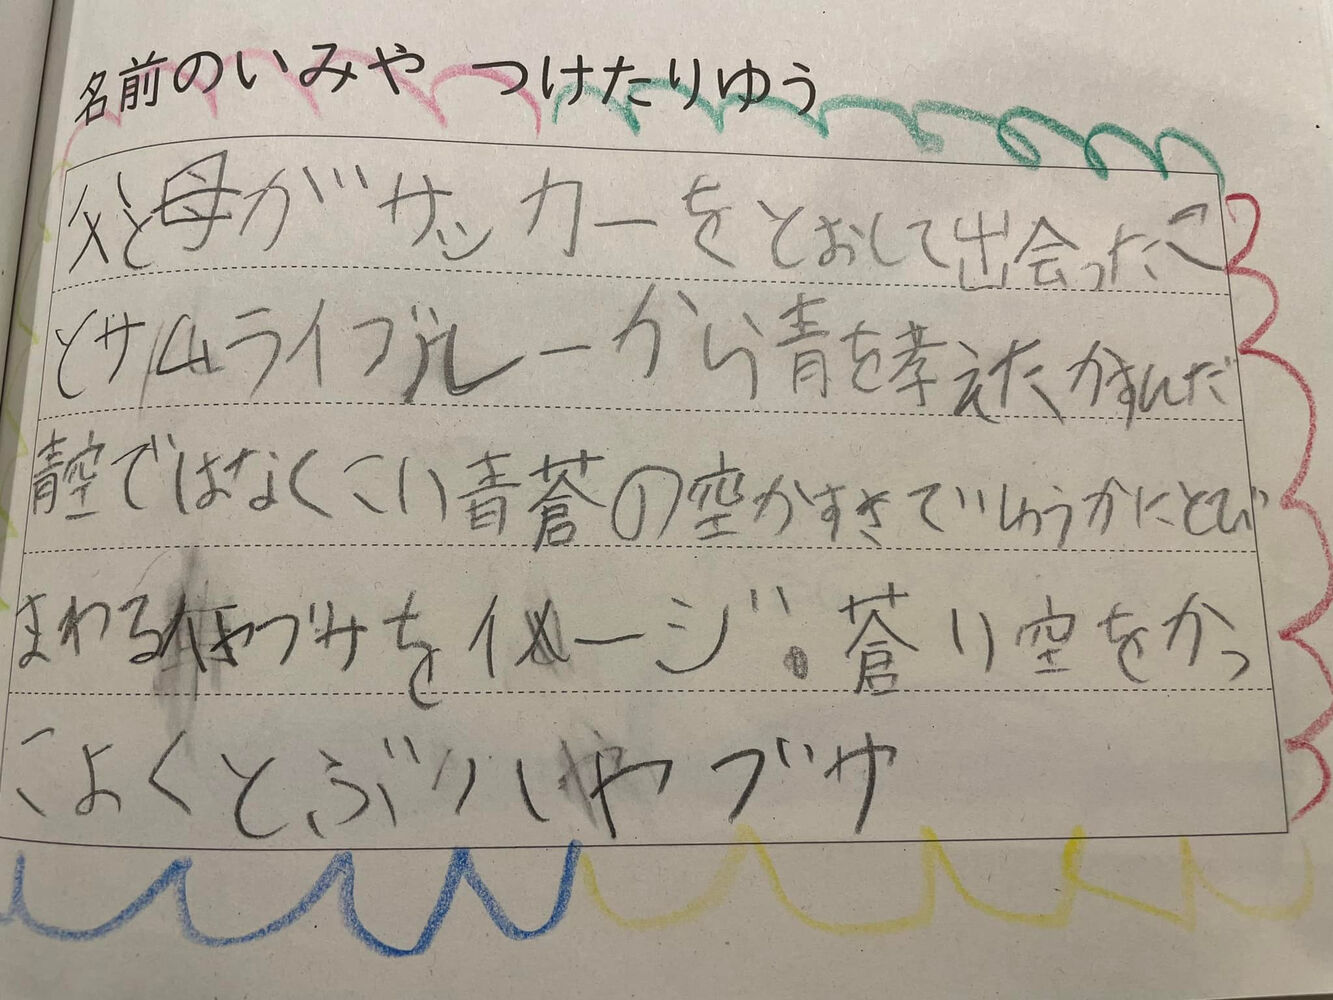 名前のいみや つけたりゆう
父と母がサッカーをとおして出会ったこ
とサムライブルーから青を考えたかすんだ
青空ではなくこい青蒼の空かすきていゆうかにとび
まわるはやブサをイメージ。蒼い空をかっ
こよくとぶハヤブサ